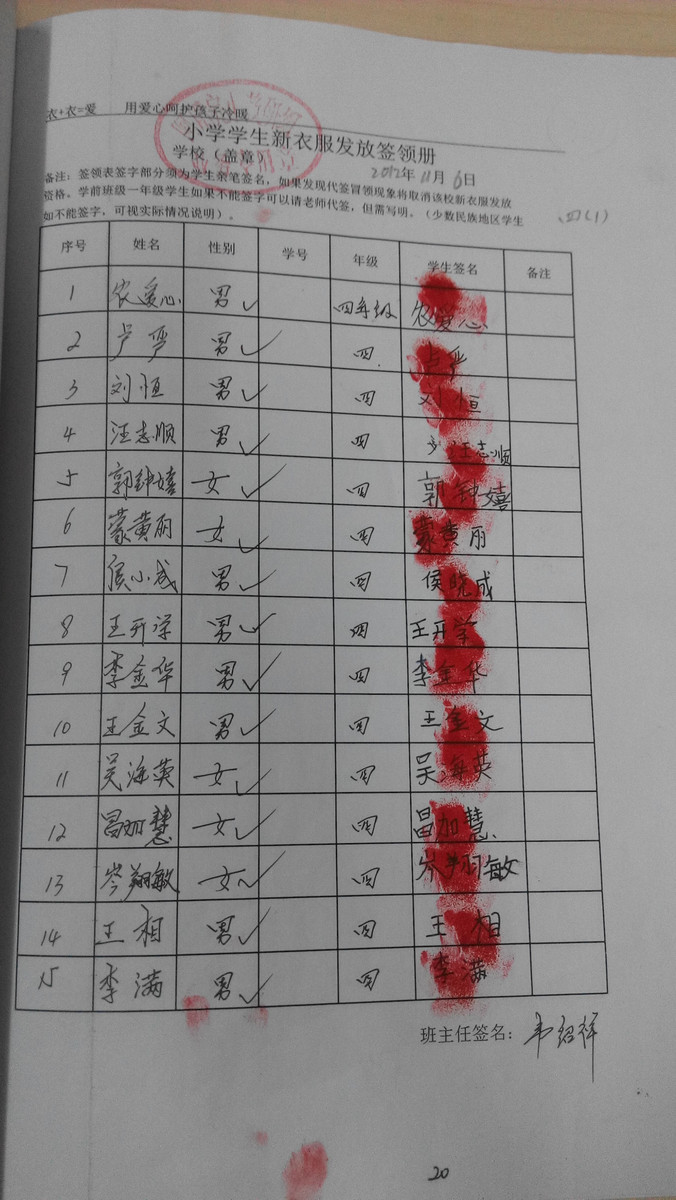 衣+衣=爱 用爱心呵护孩子冷暖
小学学生新衣服发放签领册
学校（盖章） 2012年11月6日
备注：签领表签字部分须为学生亲笔签名，如果发现代签冒领现象将取消该校新衣服发放
资格。学前班级一年级学生如果不能签字可以请老师代签，但需写明。（少数民族地区学生
如不能签字，可视实际情况说明）。 四(1)
序号 姓名 性别 学号 年级 学生签名 备注
1 农爱心 男 ✓ 四年级 农爱心
2 卢严 男 ✓ 四 卢严
3 刘恒 男 ✓ 四 刘恒
4 汪志顺 男 ✓ 四 汪志顺
5 郭钟嬉 女 ✓ 四 郭钟嬉
6 蒙黄丽 女 ✓ 四 蒙黄丽
7 侯小成 男 ✓ 四 侯晓成
8 王开学 男 ✓ 四 王开学
9 李金华 男 ✓ 四 李金华
10 王金文 男 ✓ 四 王金文
11 吴海英 女 ✓ 四 吴海英
12 昌加慧 女 ✓ 四 昌加慧
13 岑翔敏 女 ✓ 四 岑翔敏
14 王相 男 ✓ 四 王相
15 李满 男 ✓ 四 李满
班主任签名：韦绍祥
20